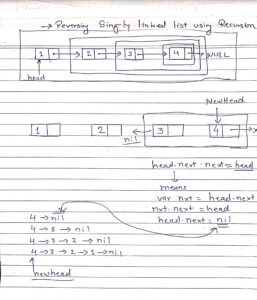 → Reversing Singly linked list using Recursion
1 → 2 → 3 → 4 → NULL
head
NewHead
1 2 3 4
nil
head.next.next = head
means
var nxt = head.next
nxt.next = head
head.next = nil
4 → nil
4 → 3 → nil
4 → 3 → 2 → nil
4 → 3 → 2 → 1 → nil
newhead